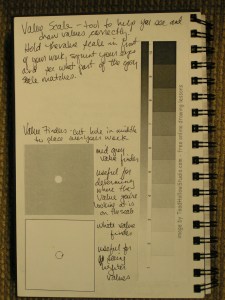 Value Scale - tool to help you see and
draw values correctly
Hold the value scale in front
of your work, squint your eyes
and see what part of the grey
scale matches.
Value Finder - cut hole in middle
to place over your work
med grey
value finder
useful for
determining
where the
value you're
looking at is
on the scale
white value
finder
useful for
seeing
values
Image by TeachMeHowStudio.com - Free online drawing lessons